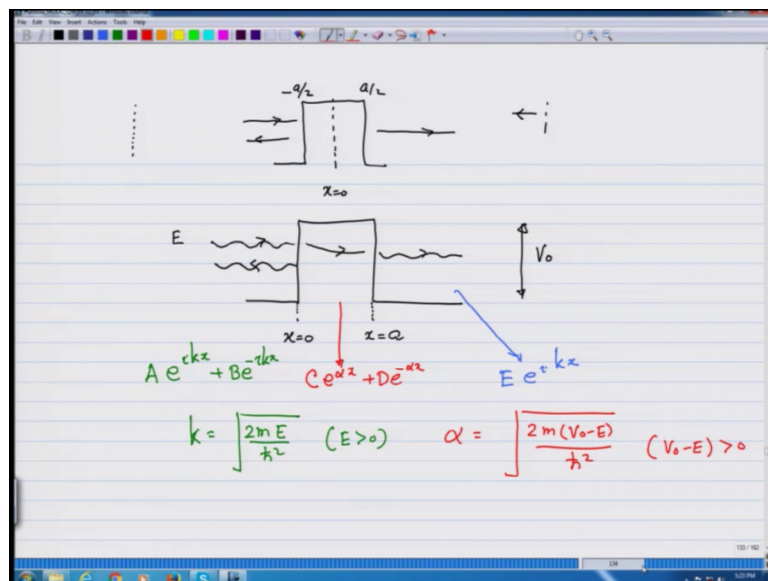 File Edit View Insert Actions Tools Help
-a/2 a/2
x=0
E
V₀
x=0 x=a
A e^{ikx} + Be^{-ikx} Ce^{αx} + De^{-αx} E e^{ikx}
k = √(2mE/ħ²) (E>0) α = √(2m(V₀-E)/ħ²) (V₀-E)>0
133 / 162
134
5:23 PM